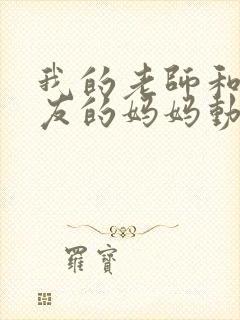 我的老師和
友的妈妈動
羅寶